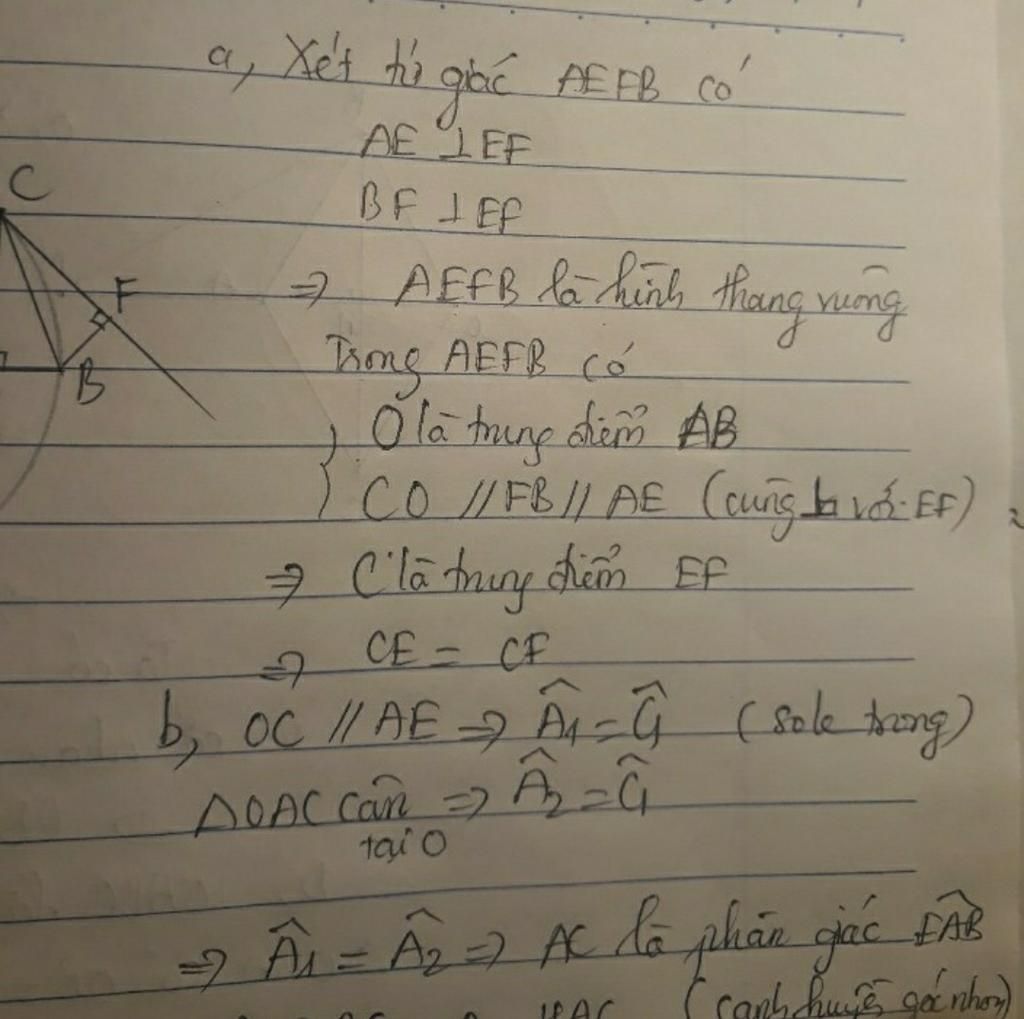 a, Xét tứ giác AEFB có
AE ⊥ EF
BF ⊥ EF
C
F
B
⇒ AEFB là hình thang vuông
Trong AEFB có
O là trung điểm AB
CO // FB // AE (cùng ⊥ với EF)
⇒ C là trung điểm EF
⇒ CE = CF
b, OC // AE ⇒ Â₁ = Ĉ₁ (sole trong)
△OAC cân ⇒ Â₂ = Ĉ₁
tại O
⇒ Â₁ = Â₂ ⇒ AC là phân giác EÂB
(cạnh huyền góc nhọn)